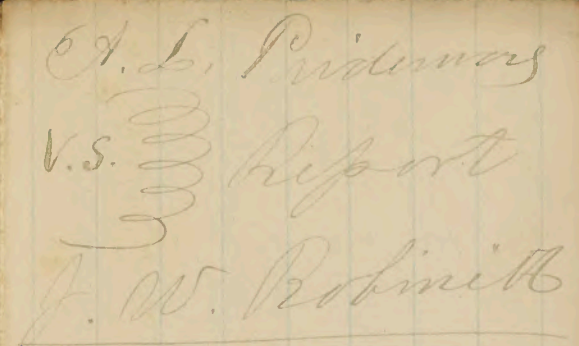 A. L. Pridemore
V.S. Report
J. W. Robinett